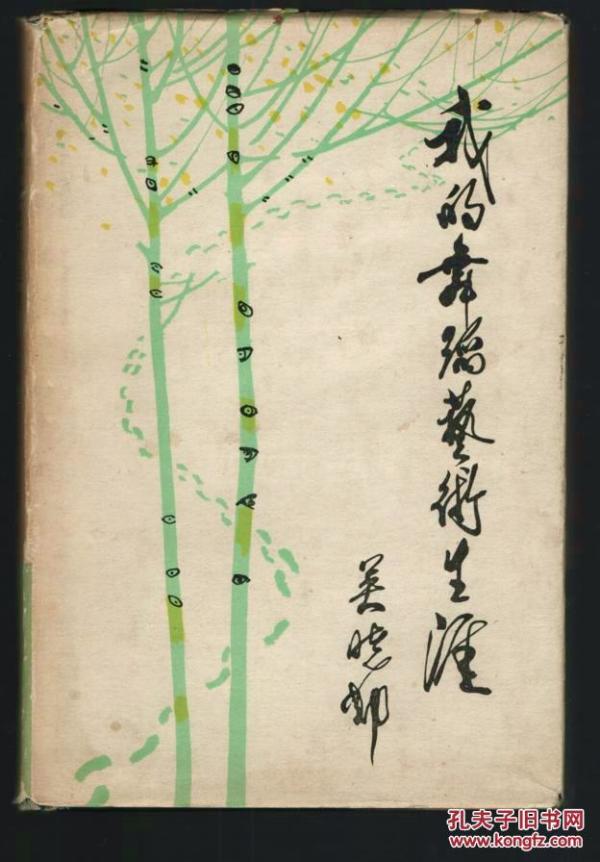 我的舞蹈藝術生涯
吴晓邦
孔夫子旧书网
www.kongfz.com